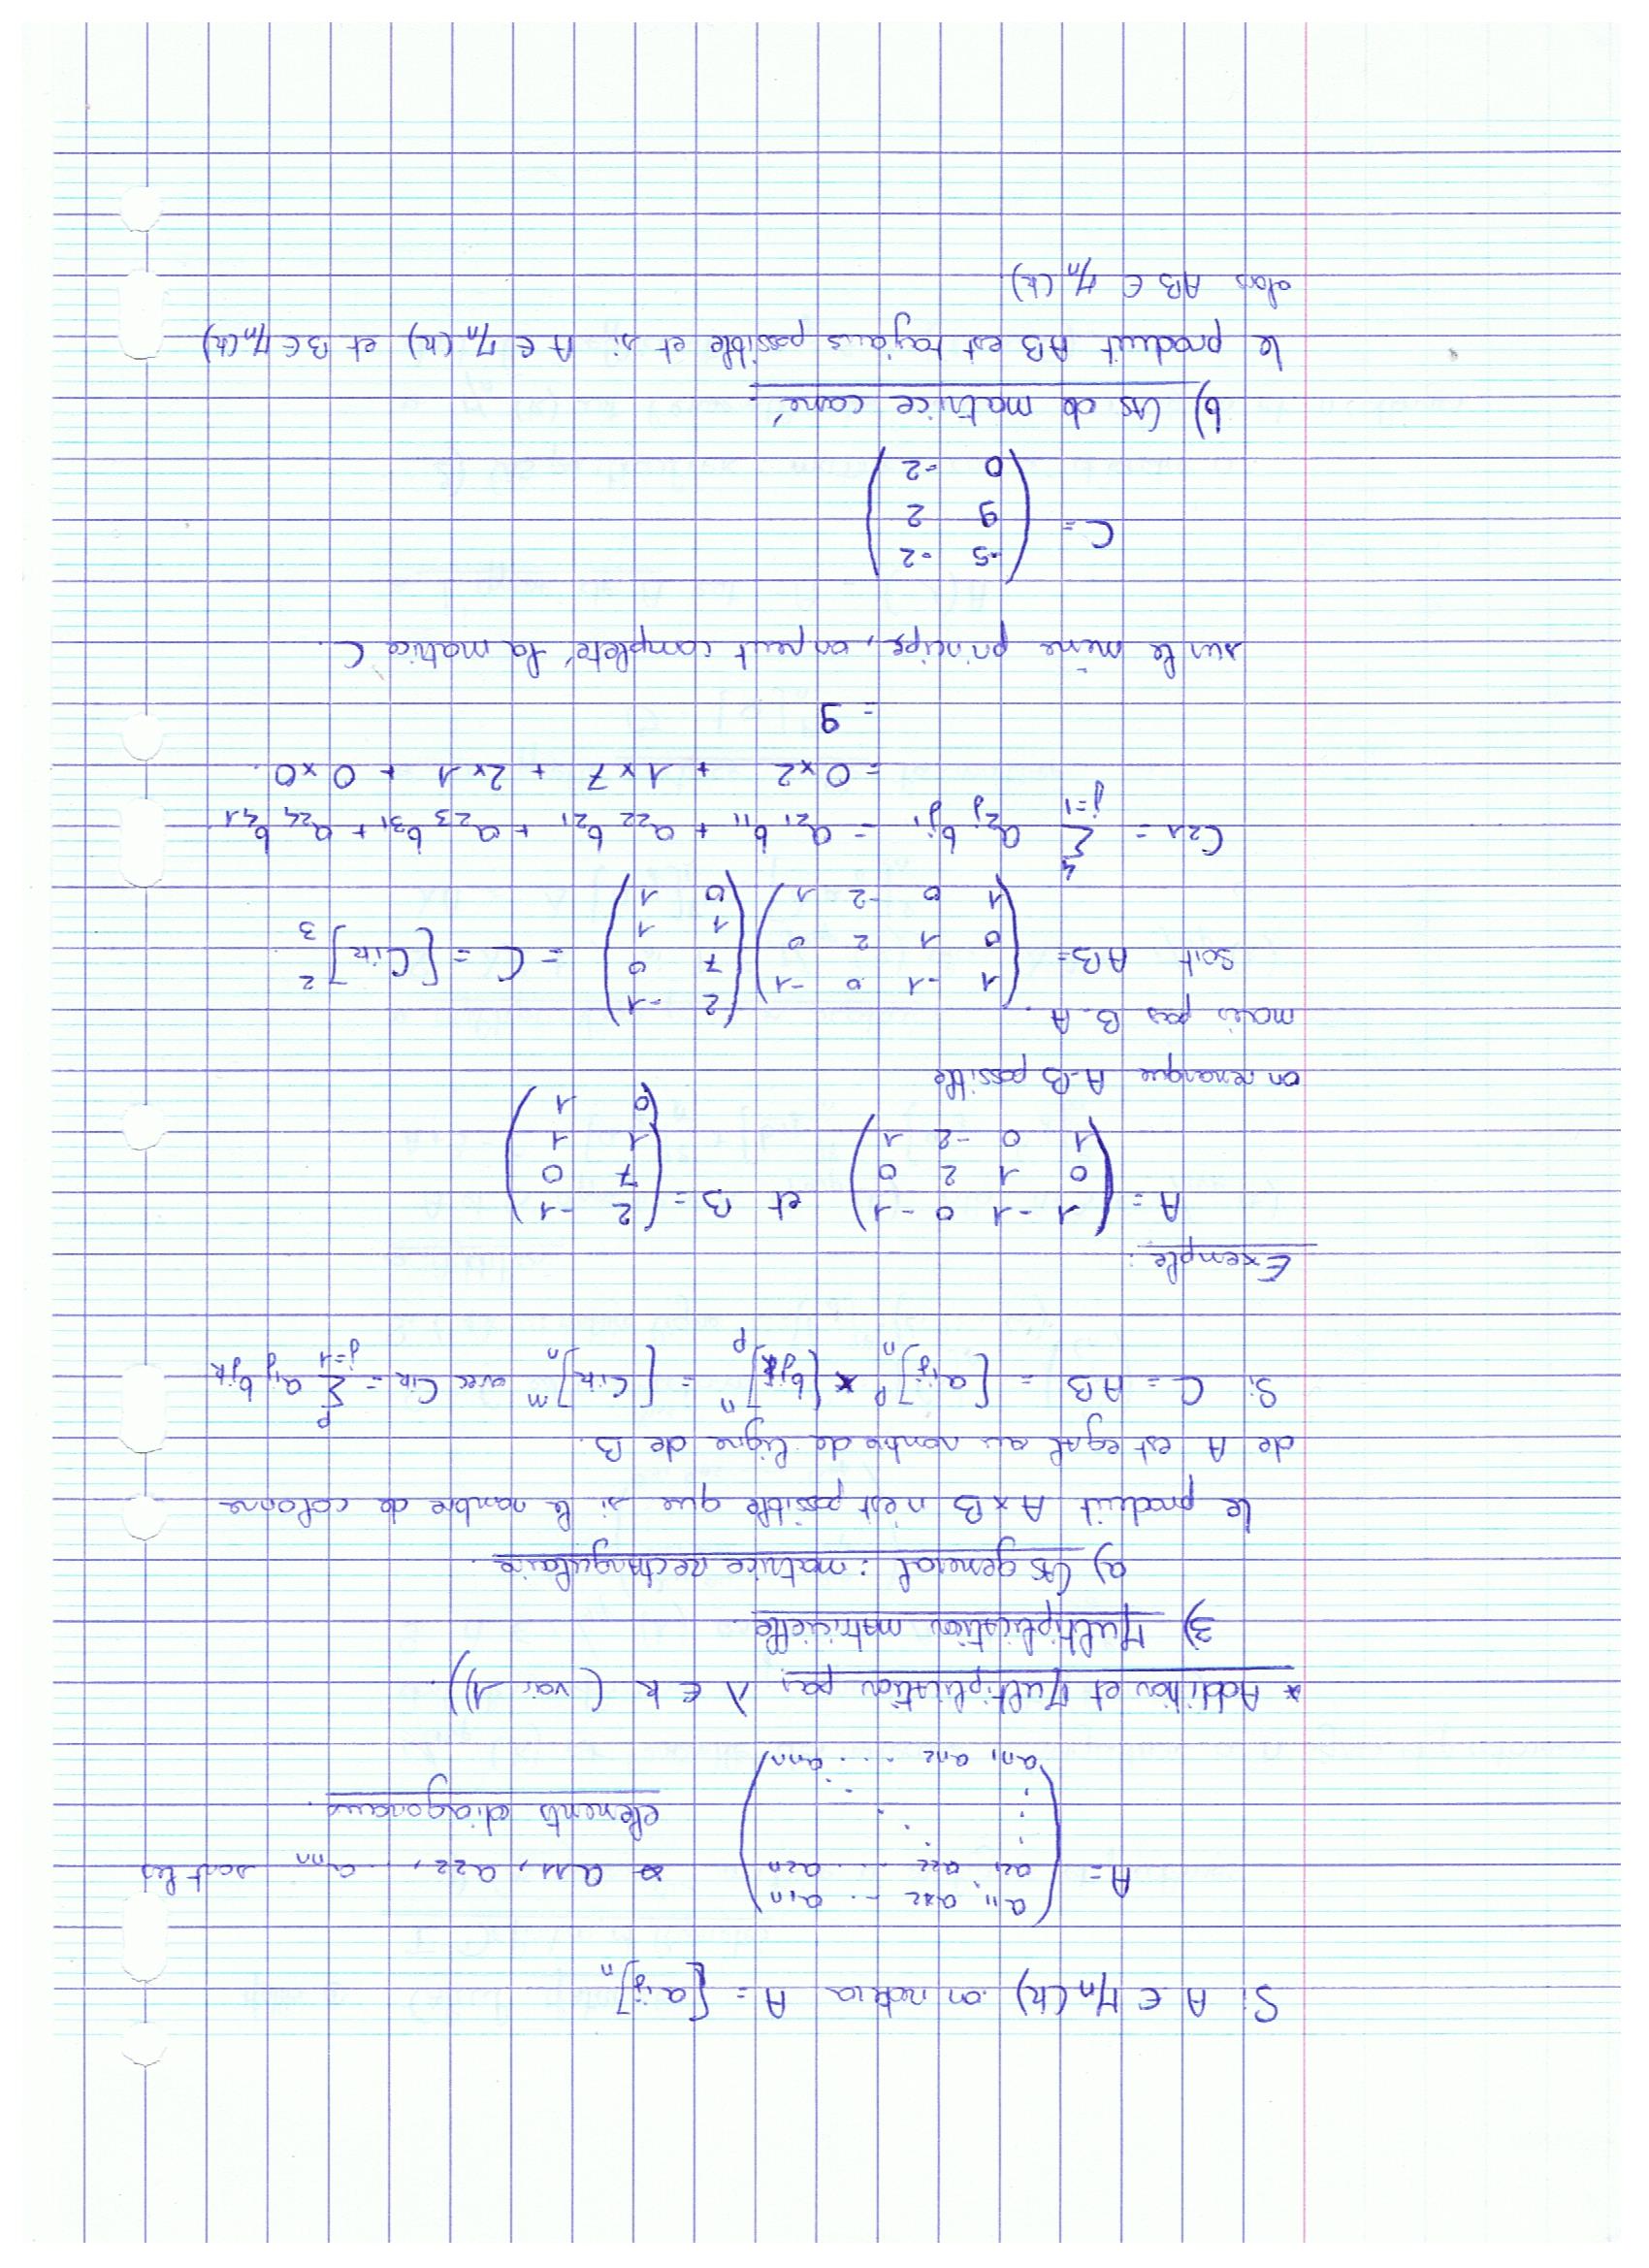 Si A ∈ Mn(k) on notera A = [aij]n
A = (a11 a12 ... a1n
a21 a22 ... a2n
an1 an2 ... ann)
a11, a22, ... ann sont les
elements diagonaux.
* Addition et Multiplication par λ ∈ k (voir 1)).
3) Multiplication matricielle
a) Cas general : matrice rectangulaire.
le produit A x B n'est possible que si le nombre de colonne
de A est egal au nombre de ligne de B.
Si C = AB = [aij]n p x [bjk]p n = [cik]n m avec cik = Σ j=1 p aij bjk
Exemple :
A = (1 -1 0 -1
0 1 2 0
1 0 -2 1) et B = (2 -1
7 0
1 1
0 1)
on remarque A.B possible
mais pas B.A
soit AB = (1 -1 0 -1
0 1 2 0
1 0 -2 1) (2 -1
7 0
1 1
0 1) = C = [cik]3 2
C21 = Σ j=1 4 a2j bj1 = a21 b11 + a22 b21 + a23 b31 + a24 b41
= 0x2 + 1x7 + 2x1 + 0x0.
= 9
sur le même principe, on peut completé la matrice C.
C = (-5 -2
9 2
0 -2)
b) Cas de matrice carré.
le produit AB est toujours possible et si A ∈ Mn(k) et B ∈ Mn(k)
alors AB ∈ Mn(k)